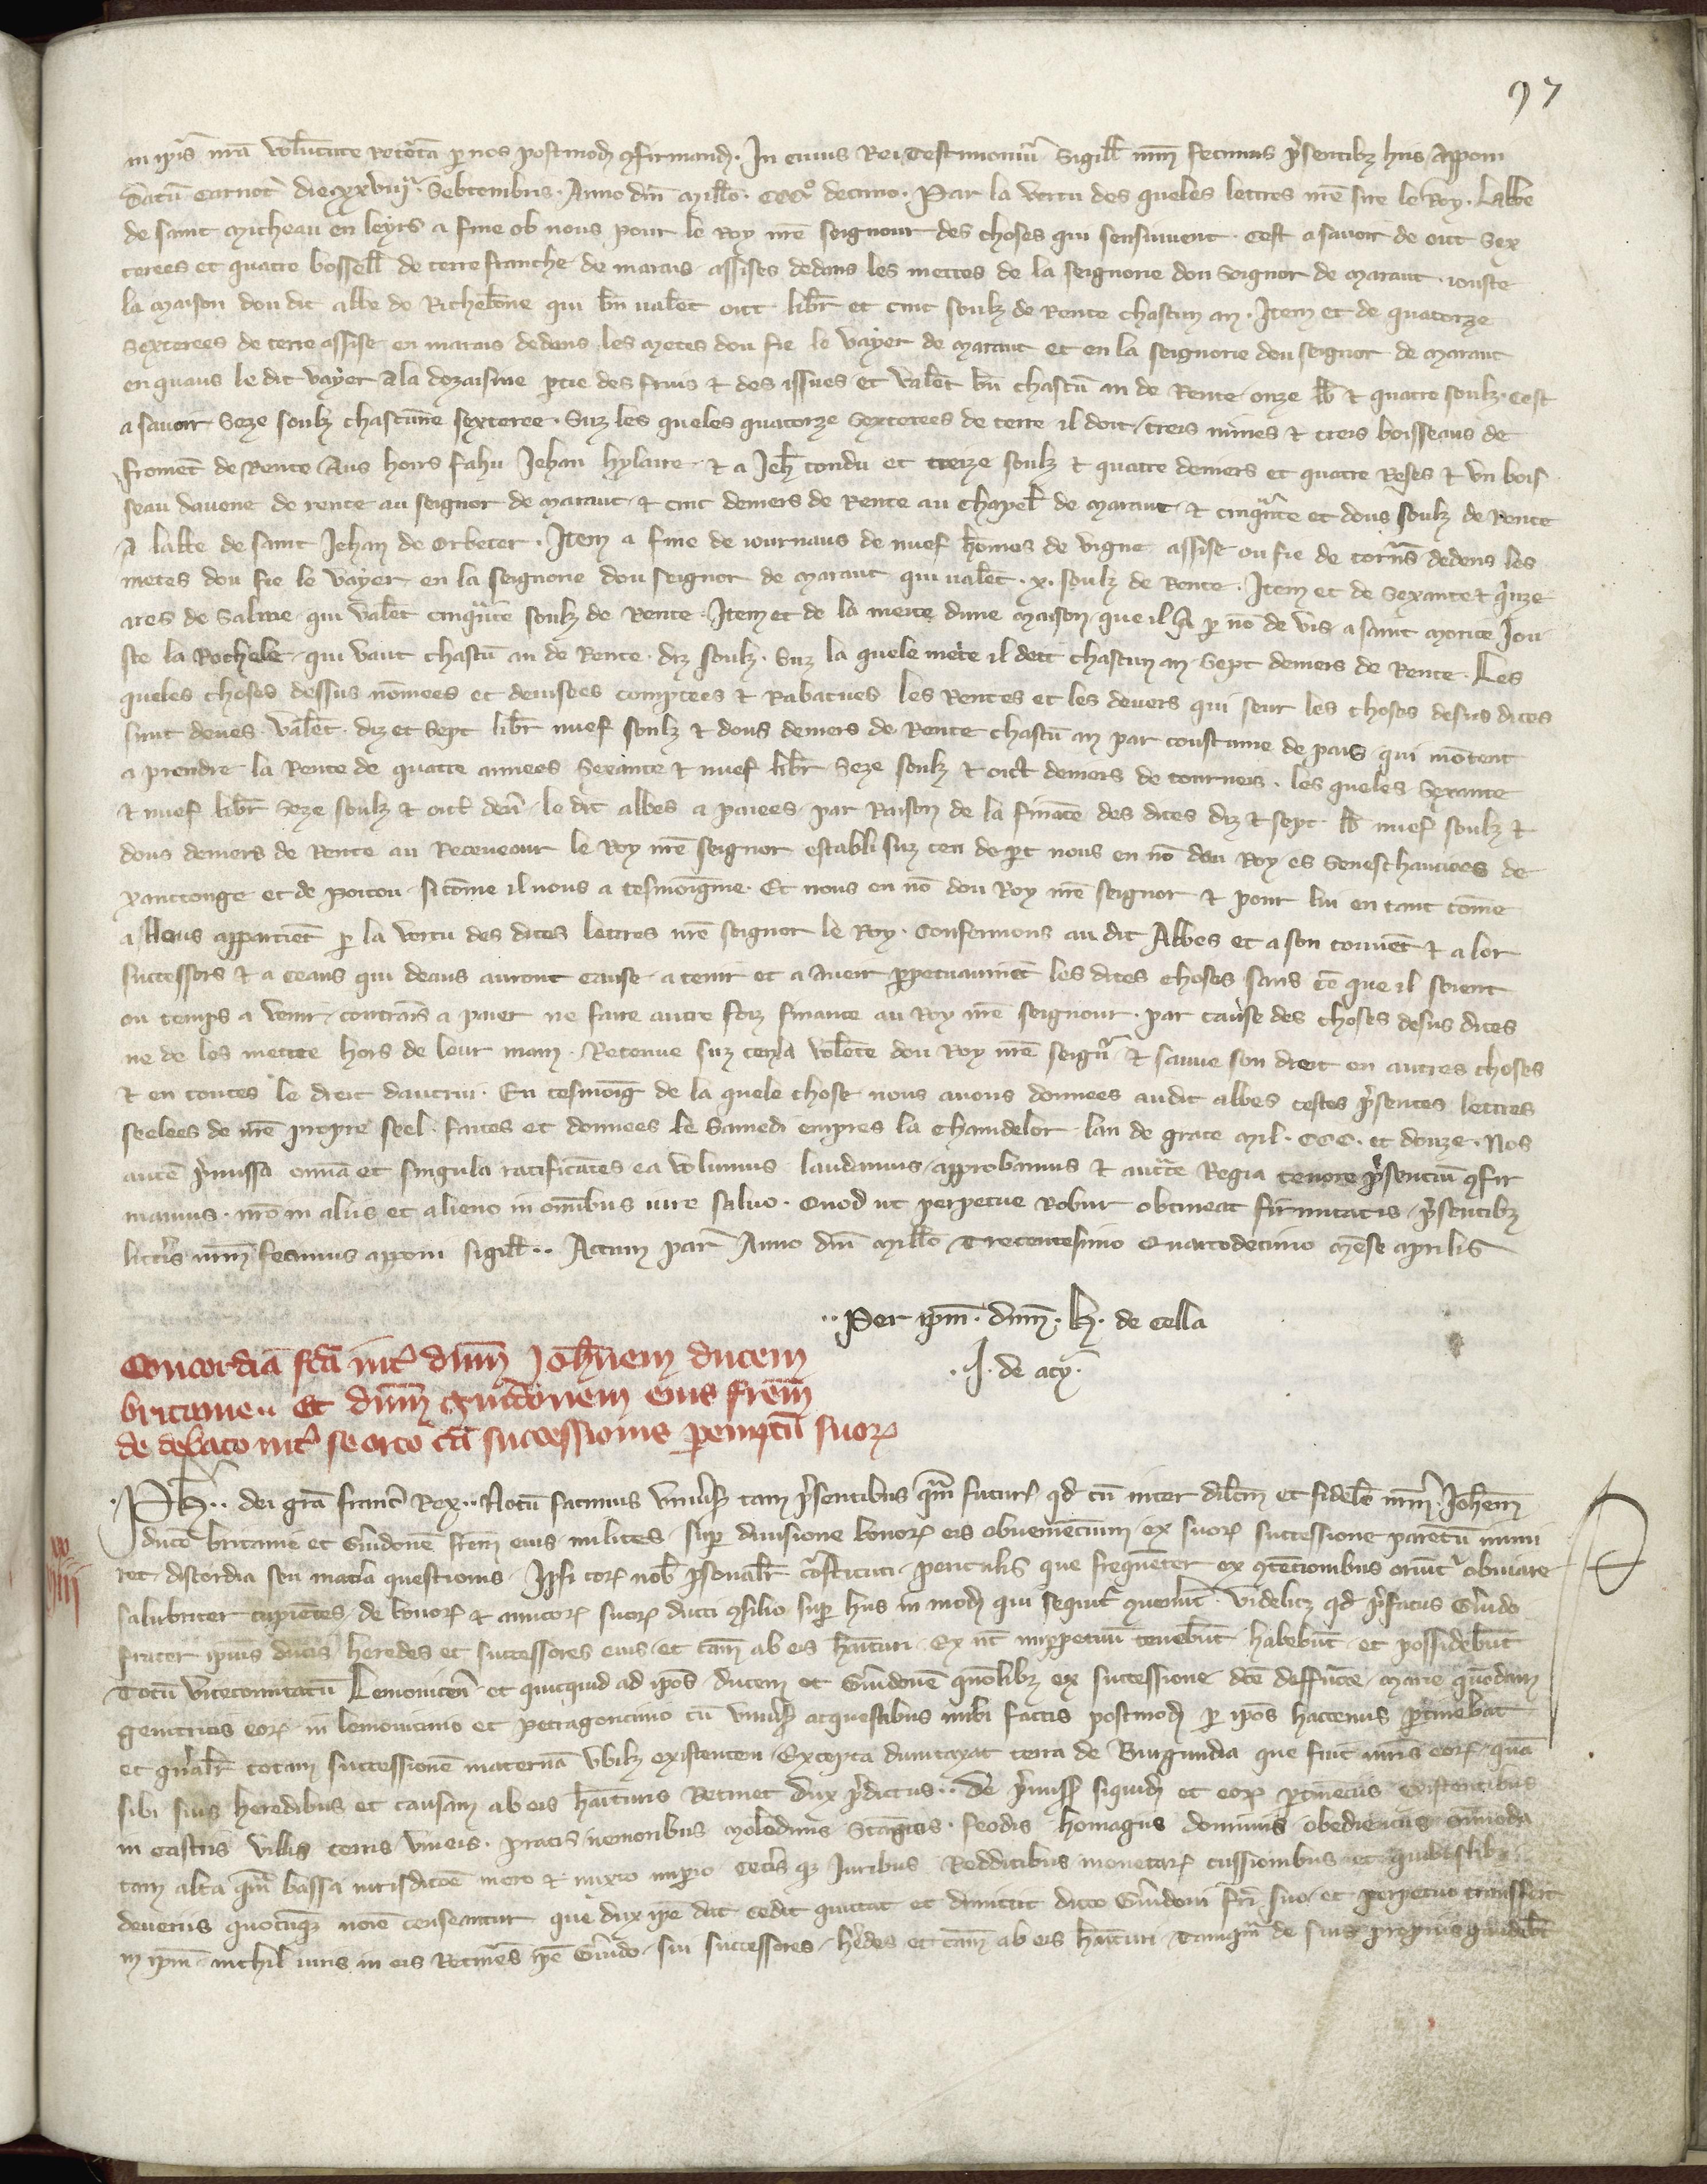 97
in ipīs nrā volūtate retēta p nos postmodū ɔfirmand. In cuius Rei Testimoniū Sigill nrm fecimus p̄sentibz hiis Apponi
Datū Carnot die xxviijª Septembris. Anno dni Millo. CCCº decimo. Par la vertu des queles lettres nrē sire le Roy. Labbe
de saint Micheau en leyrs a fine ob nous pour le Roy nrē seignour des choses qui sensiuuent. cest a sauoir de oict Sex
terees et quatre bossell de terre franche de marais assises dedans les mettes de la seignorie dou Seignor de Maraut. iouste
la Maison dou dit abbe de Richebōne qui bn ualēt oict libr et cinc soulz de Rente chascun an. Item et de quatorze
Sexterees de terre assise en marais dedens les Metes dou fie le vayer de Maraut et en la seignorie dou seignor de Maraut
en quaus le dit vayer a la dozaisme ptie des fruis & des issues et valēt bn chascū an de Rente onze lb & quatre soulz. cest
a sauoir Seze soulz chascūne sexteree. Suz les queles quatorze Sexterees de terre il doit treis mines & treis boisseaus de
fromēt de Rente Aus hoirs fahu Jehan hylaire & a Jeh condu et treize soulz & quatre deniers et quatre Reses & vn bois
seau dauene de rente au seignor de Maraut & cinc deniers de Rente au Chapel de Maraut & cinquāte et dous soulz de Rente
A labbe de saint Jehan de Orbeter. Item a fine de iournaus de nuef hōmes de vigne assise ou fie de torn̄s dedens les
metes dou fie le vayer en la seignorie dou seignor de Maraut qui ualēt .x. soulz de Rente. Item et de Sexante & q̄nze
ares de Saline qui valēt cinquāte soulz de Rente. Item et de la meite dune Maison que il A p nō de vis a saint Morice Jou
ste la Rochele qui vaut chascū an de Rente diz soulz. Suz la quele meite il dett chascun an Sept deniers de Rente. Les
queles choses dessus nōmees et deuisees comptees & Rabatues les Rentes et les deuers qui seur les choses desus dites
sunt deues valēt diz et Sept libr nuef soulz & dous deniers de Rente chascū an par coustume de pais qui mōtent
a prendre la Rente de quatre annees Sexante & nuef libr Seze soulz & oict deniers de tourneis. les queles Sexante
& nuef libr Seze soulz & oict den̄ le dit abbes a paiees par Raison de la fināce des dites diz & sept lb nuef soulz &
dous deniers de Rente au Receueour le Roy nrē seignor establi suz ceu de pt nous en nō dou Roy es Seneschaucees de
Xanctonge et de Poitou si cōme il nous a tesmoigne. Et nous en nō dou Roy nrē seignor & pour lui en tant cōme
a Nous appartiēt p la vertu des dites lettres nrē seignor le Roy. Confermons au dit Abbes et a son conuēt & a lor
successors & a ceaus qui deaus auront cause a tenir et a Aueir ppetuaumēt les dites choses sans cē que il soient
ou temps a venir contrains a paier ne faire autre foiz finance au Roy nrē seignour. par cause des choses desus dites
ne de les mettre hors de leur main. Retenue suz ceu la volēte dou Roy nrē seign̄r & sauue son dreit en autres choses
& en toutes le dreit dautrui. En tesmoig de la quele chose nous auons donnees audit abbes cestes p̄sentes lettres
seelees de nrē propre seel faites et donnees le Samedi empres la Chandelor lan de grace Mil. CCC. et douze. Nos
autē p̄missa omīa et singula ratificātes ea volumus laudamus approbamus & auctate Regia tenore p̄sentiū ɔfir
mamus. nrō in aliis et alieno in omībus iure saluo. Quod ut perpetue Robur obtineat firmitatis p̄sentibz
littīs nrm fecimus apponi sigill.. Actum par Anno dni Millo Trecentesimo Quartodecimo Mēse aprilis
..Per ipm. dnm. h. de Cella
.J. de acy.
Concordiā fcā int dnm Johēnem ducem
britannen Et dnm Guidonem eius frem
de debato int se orto cā successionis parentū suorꝝ
Ph.. dei grā francꝭ Rex.. Notū facimus vniuersꝭ tam p̄sentibus qm futurꝭ qd cū inter dilcm et fidelē nrm Johēm
ducē britanie et Guidonē frem eius milites sup diuisione bonorꝝ eis obueniencium ex suorꝝ successione parētū mini
ret discordia seu matīa questionis. Ipsi corꝝ nob psonalr cōstituti periculis que frequēter ex ɔtētionibus oriūt obuiare
salubriter cupientes de bonorꝝ & amicorꝝ suorꝝ ducti ɔsilio sup hiis in modū qui sequit ɔuenūt. Videlicz qd p̄fatus Guido
frater ipsius ducis heredes et successores eius et cām ab eis hituri Ex nc impetuū tenebūt habebūt et possidebūt
Totū vicecomitatū Lemonicen̄ et quicquid ad ipōs ducem et Guidonē quōlibz ex successione dcē deffuncte Marie quōdam
genitricis eorꝝ in lemouicinio et petragoricinio cū vniuersꝭ acquestibus inibi factis postmodū p ipōs hactenus ptinebat
et gn̄alr totam successionē maternā vbilz existentem Excepta dumtaxat terra de Burgundia que fuit mr̄is eorꝝ quā
sibi suis heredibus et causam ab eis hituris Retinet dux p̄dictus.. De p̄missꝭ siquid et eorꝝ ptinēciis existentibus
in castris villis terris vineis. pratis nemoribus Molendinis Stagnis. feodis homagiis dominiis obedienciis omīmoda
tam alta qm bassa iurisdicōe mero & mixto impio Cetis qz Juribus Redditibus monetarꝝ cussionibus et quibuslibz
deueriis quocūqz noīe censeantur que dux ipē dat cedit quittat et dimittit dicto Guidoni fri suo et perpetuo transfert
in ipm nichil iuris in eis Retinēs ipē Guido sui successores heredes et cām ab eis hituri Tamqm de suis propriis gaudebūt